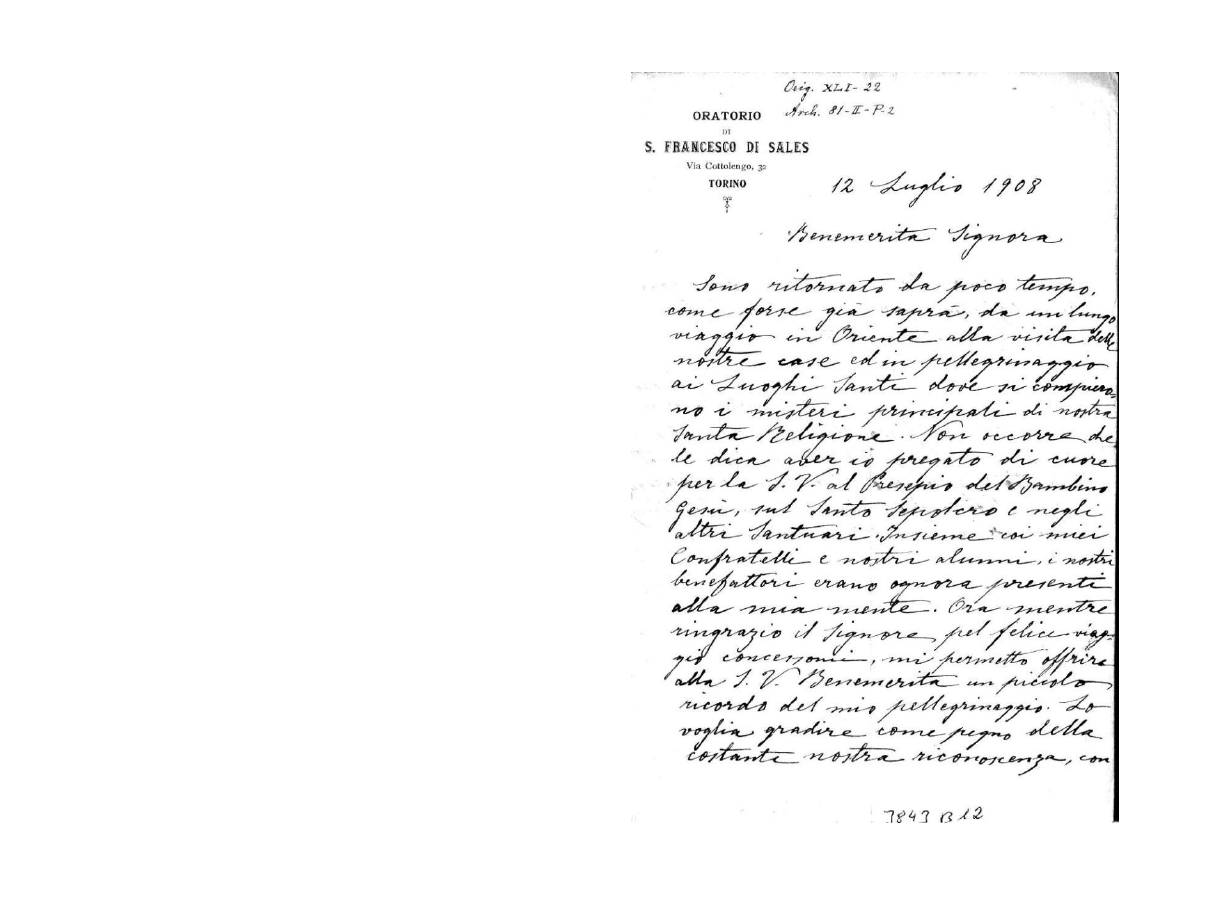 Orig. XLI-22
Arch. 81-II-P-2
ORATORIO
DI
S. FRANCESCO DI SALES
Via Cottolengo, 32
TORINO
12 Luglio 1908
Benemerita Signora
Sono ritornato da poco tempo,
come forse già saprà, da un lungo
viaggio in Oriente alla visita delle
nostre case ed in pellegrinaggio
ai Luoghi Santi dove si compiero-
no i misteri principali di nostra
Santa Religione. Non occorre che
le dica aver io pregato di cuore
per la S. V. al Presepio del Bambino
Gesù, sul Santo Sepolcro e negli
altri Santuari. Insieme coi miei
Confratelli e nostri alunni, i nostri
benefattori erano ognora presenti
alla mia mente. Ora mentre
ringrazio il Signore pel felice viag-
gio concessomi, mi permetto offrire
alla S. V. Benemerita un piccolo
ricordo del mio pellegrinaggio. Lo
voglia gradire come pegno della
costante nostra riconoscenza, con
3843 B 12